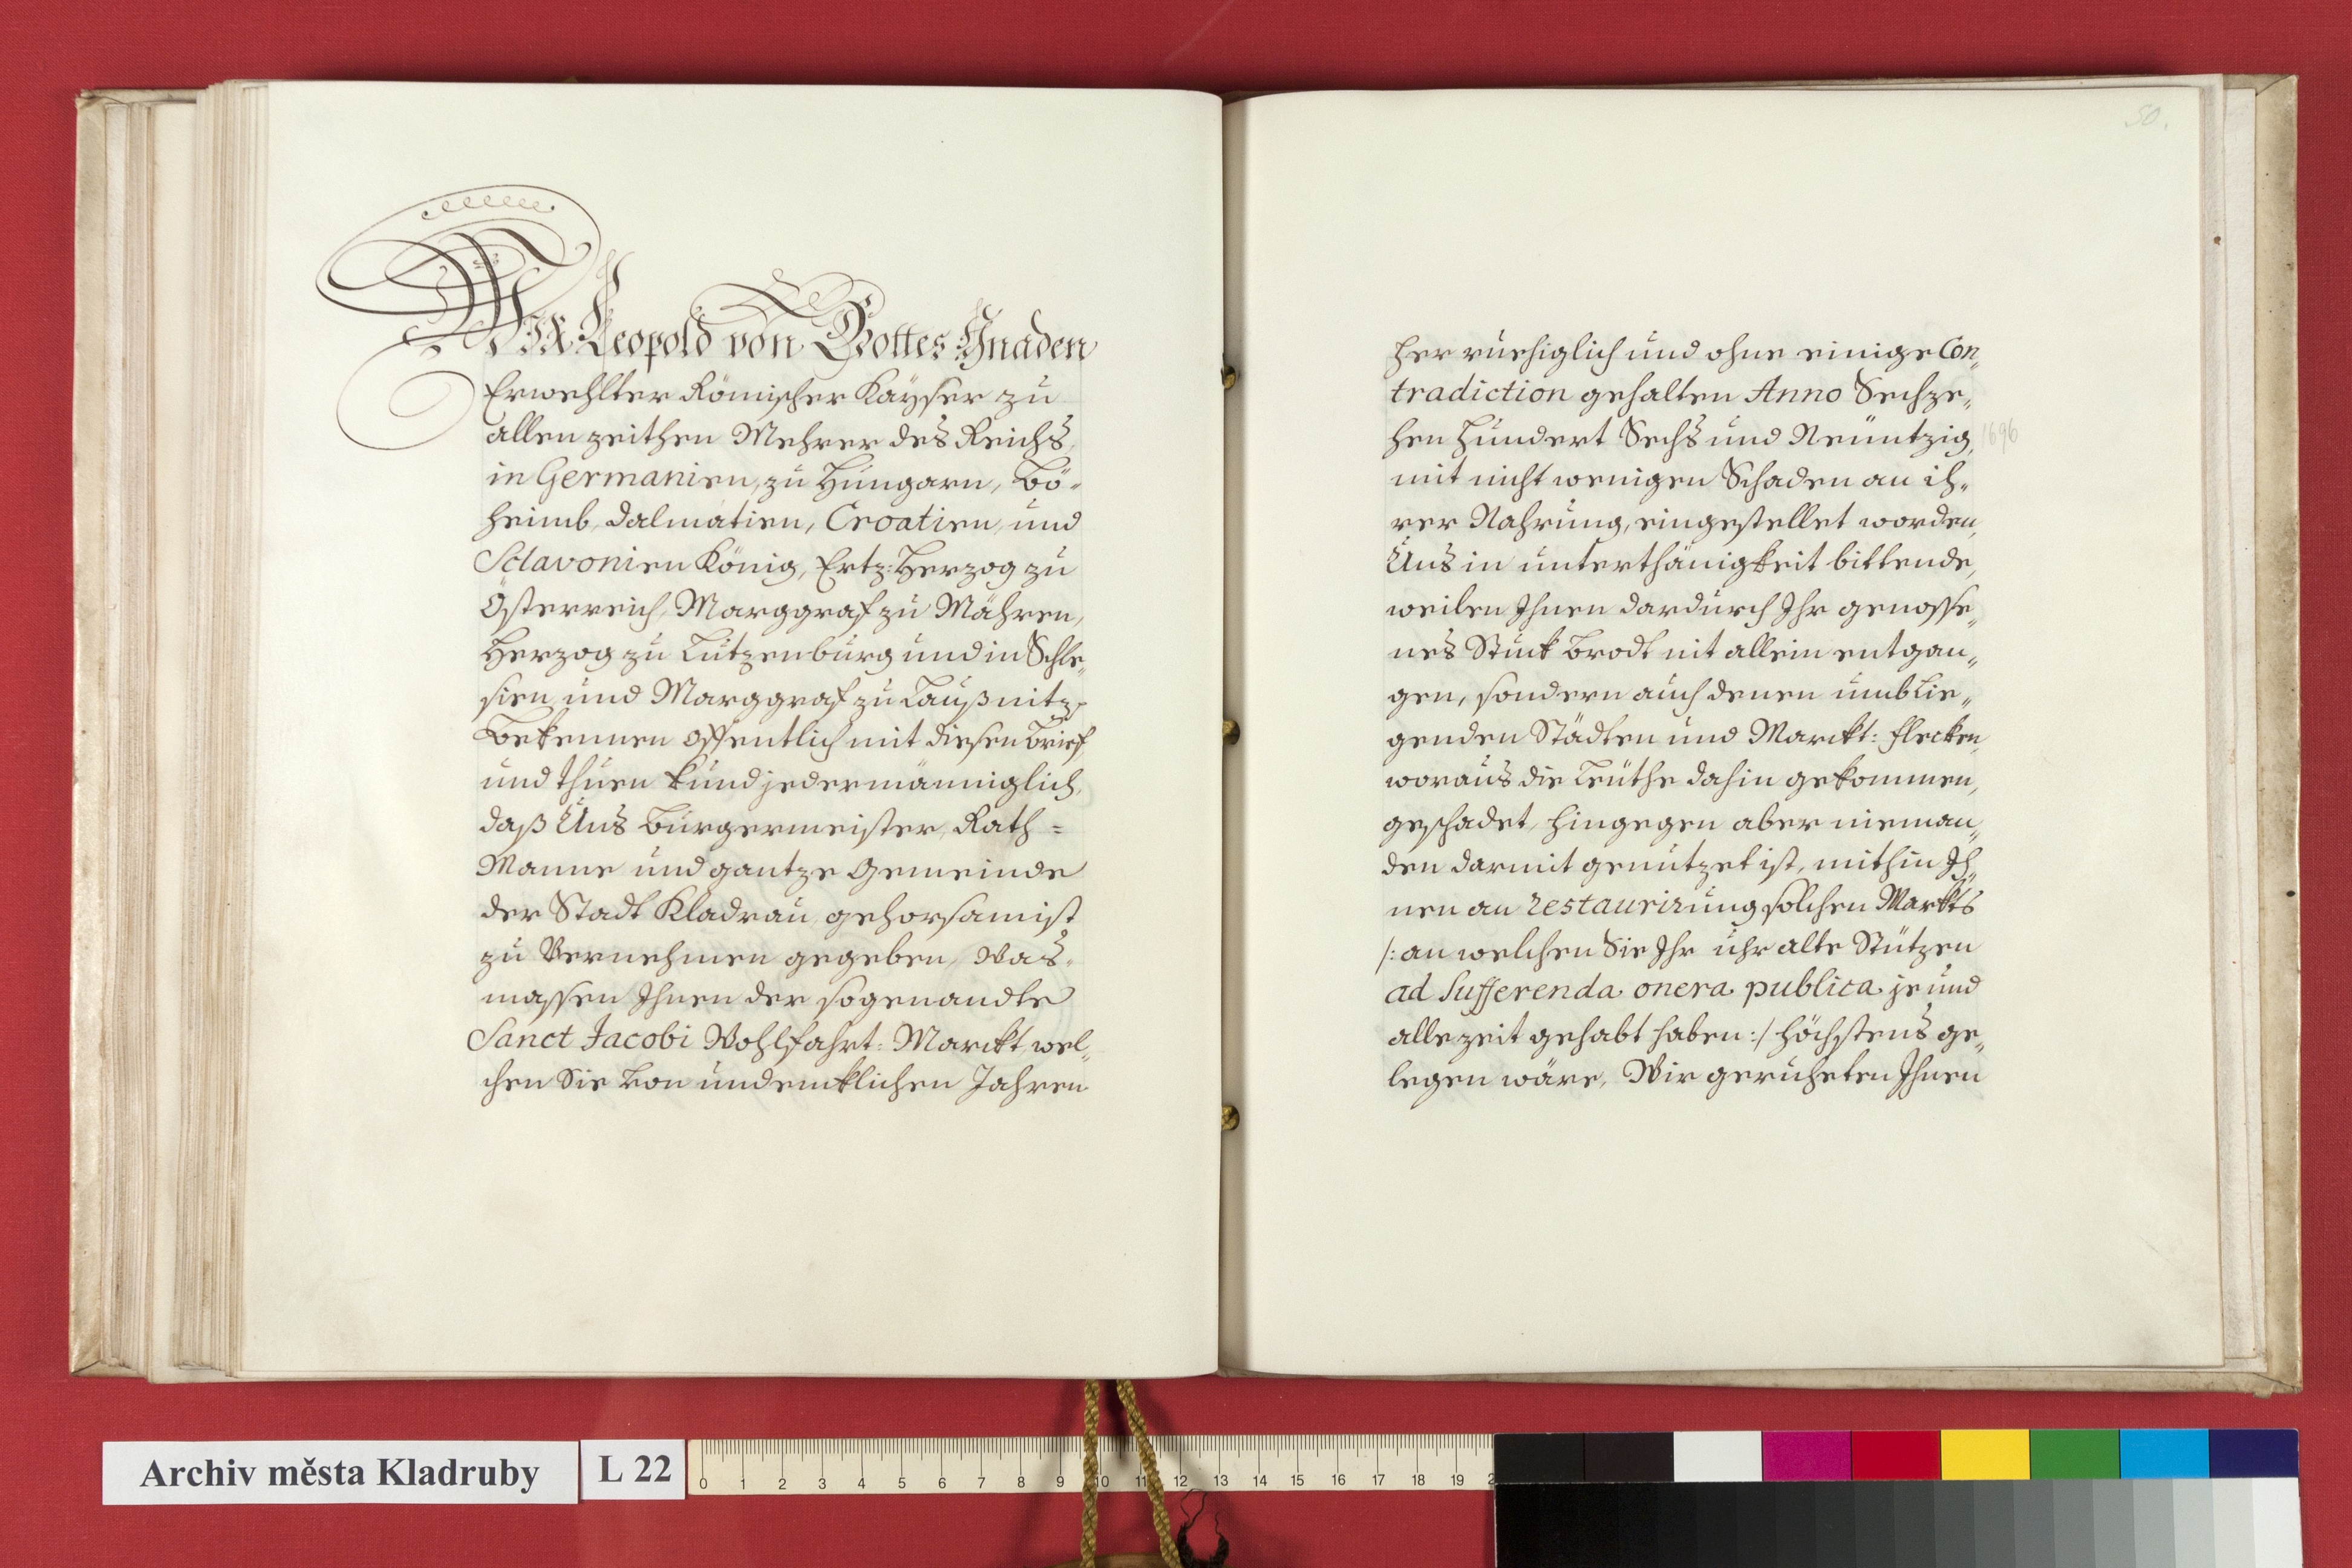 WIR Leopold von Gottes Gnaden
Erwehlter Römischer Kayser zu
allen zeithen Mehrer des Reichs,
in Germanien, zu Hungarn, Bö-
heimb, Dalmatien, Croatien, und
Sclavonien König, Ertz-Herzog zu
Österreich, Marggraf zu Mähren,
Herzog zu Lützenburg und in Schle-
sien und Marggraf zu Laußnitz,
Bekennen offentlich mit diesen brief
und thuen kund jedermänniglich,
daß Uns Burgermeister, Rath-
Manne und gantze Gemeinde
der Stadt Kladrau gehorsamist
zu Vernehmen gegeben, Was-
massen Ihnen der sogenandte
Sanct Jacobi Wohlfahrt: Marckt, wel-
chen Sie von undencklichen Jahren
50.
her ruehiglich und ohne einige Con-
tradiction gehalten Anno Sechze-
hen hundert Sechs und Neuntzig, 1696
mit nicht wenigen Schaden an ih-
rer Nahrung, eingestellet worden,
Uns in unterthänigkeit bittende,
weilen Ihnen dardurch Ihr genosse-
nes Stuck Brodt nit allein entgan-
gen, sondern auch denen umblie-
genden Städten und Marckt: flecken,
woraus die Leuthe dahin gekommen,
geschadet, hingegen aber nieman-
den darmit genutzet ist, mithin Ih-
nen an restaurirung solchen Markts
/: an welchen Sie Ihr uhr alte Stützen
ad sufferenda onera publica je und
alle zeit gehabt haben :/ höchstens ge-
legen wäre, Wir geruheten Ihnen
Archiv města Kladruby
L 22
0 1 2 3 4 5 6 7 8 9 10 11 12 13 14 15 16 17 18 19 2